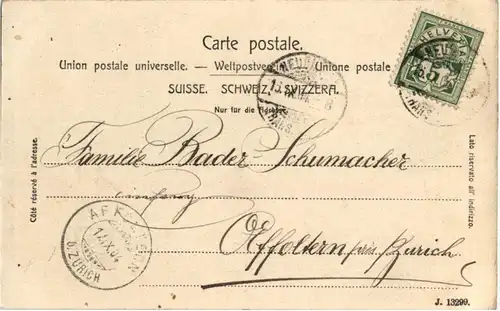 Carte postale.
Union postale universelle. — Weltpostverein. — Unione postale
SUISSE. SCHWEIZ. SVIZZERA.
Nur für die Adresse.
HELVETIA
Côté réservé à l'adresse.
Lato riservato all' indirizzo.
Familie Bader-Schumacher
Affoltern près Zurich
AFFOLTERN
b. ZÜRICH
J. 13299.